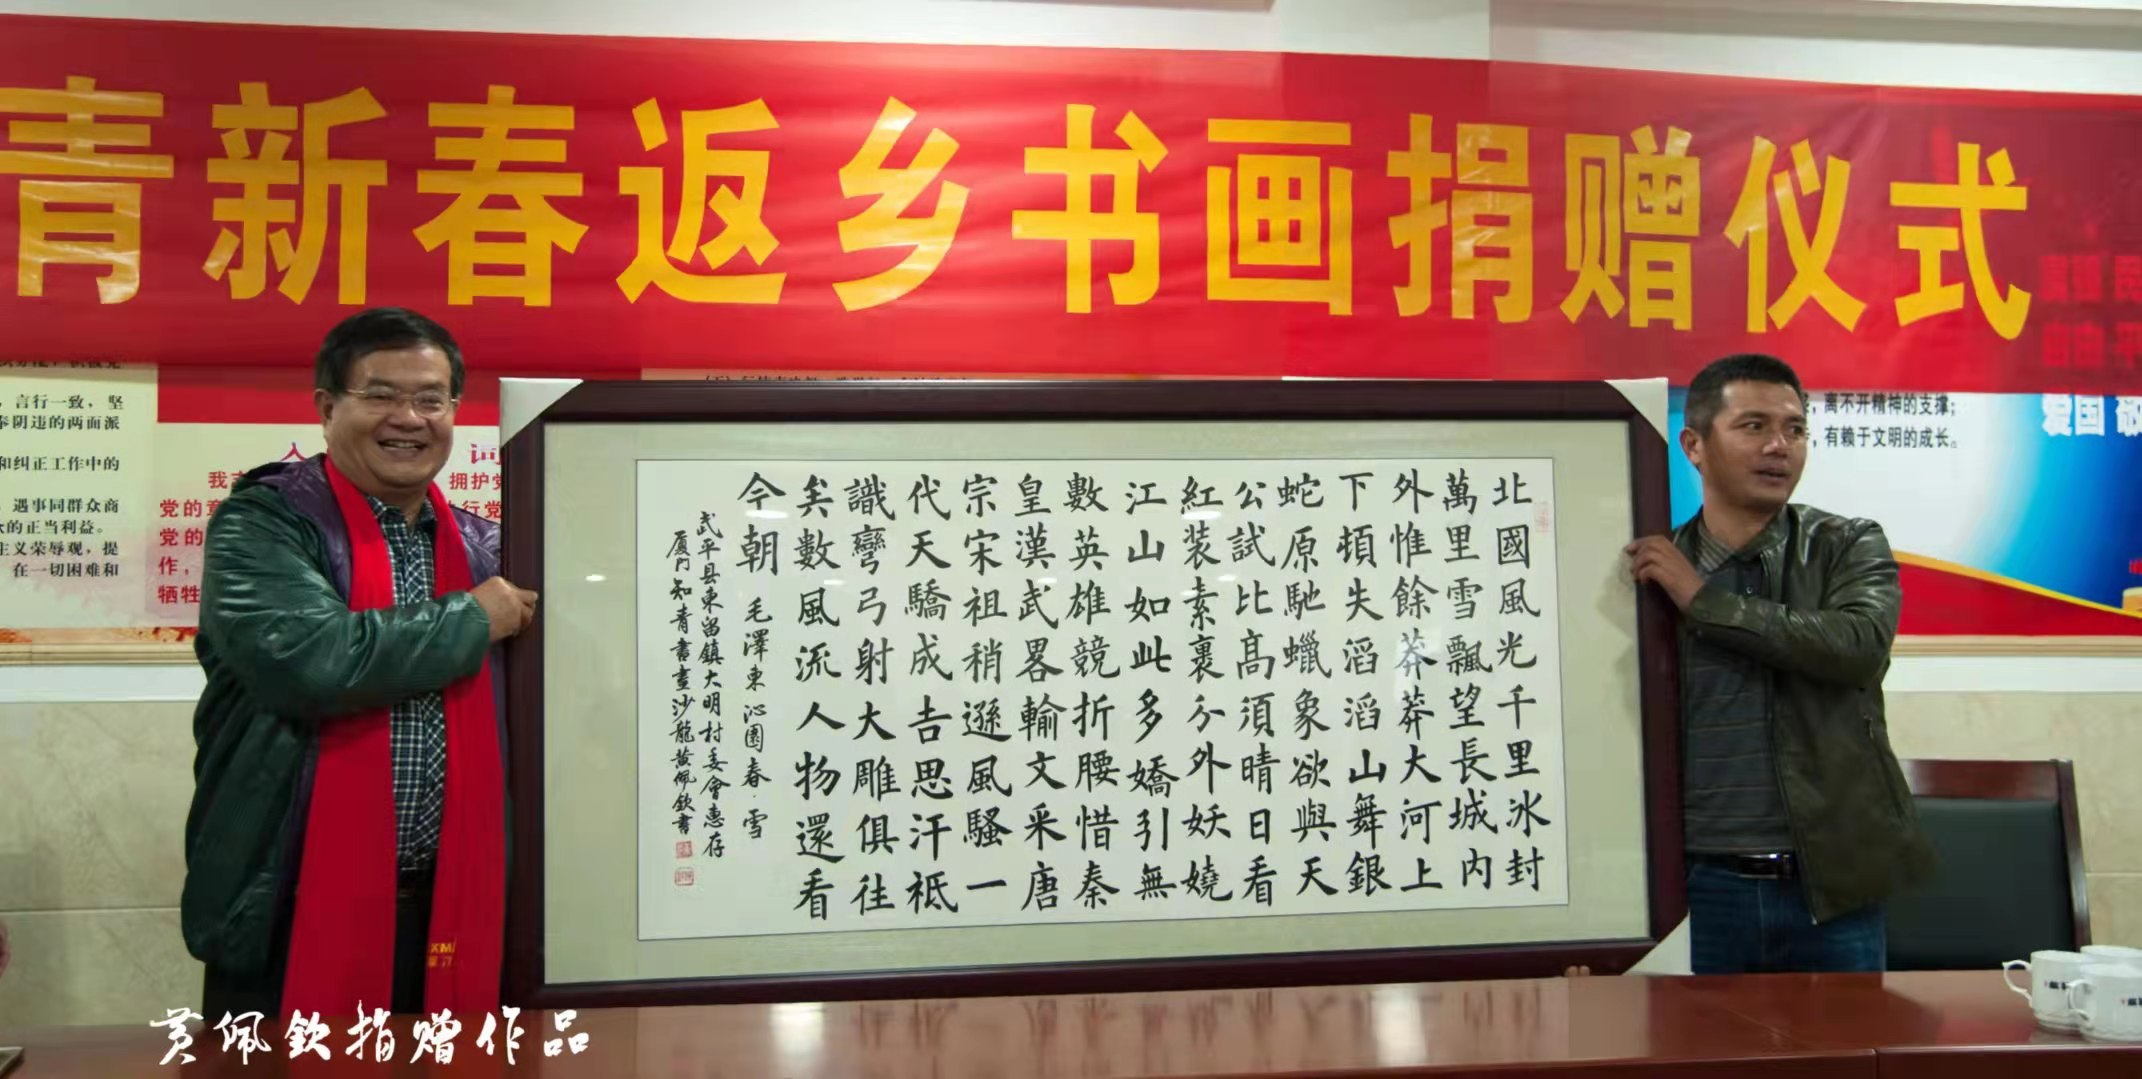 青新春返乡书画捐赠仪式
北國風光千里冰封
萬里雪飄望長城内
外惟餘莽莽大河上
下頓失滔滔山舞銀
蛇原馳蠟象欲與天
公試比高須晴日看
紅装素裹分外妖嬈
江山如此多嬌引無
數英雄競折腰惜秦
皇漢武畧輸文采唐
宗宋祖稍遜風騷一
代天驕成吉思汗祗
識彎弓射大雕俱往
矣數風流人物還看
今朝 毛澤東沁園春 雪
武平县東留鎮大明村委會惠存
厦门知青書畫沙龍黄佩欽書
，言行一致，坚
奉阴违的两面派
和纠正工作中的
，遇事同群众商
众的正当利益。
主义荣辱观，提
在一切困难和
入 词
我 拥护党
党的章 执行党
党的
作，
牺牲
离不开精神的支撑；
，有赖于文明的成长。
富强 民
自由 平
爱国 敬
XM
黄佩欽捐赠作品